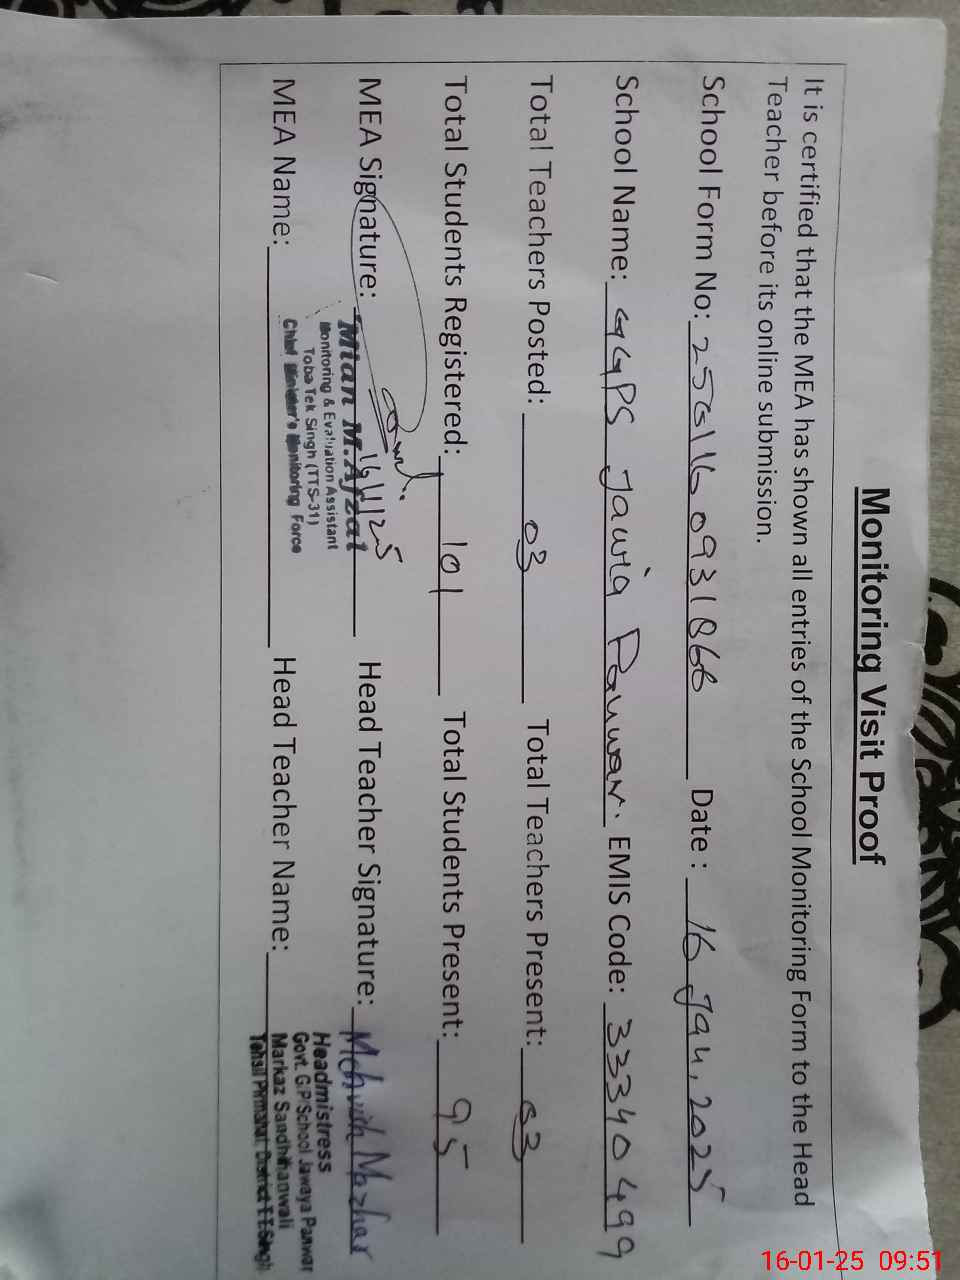 Monitoring Visit Proof
It is certified that the MEA has shown all entries of the School Monitoring Form to the Head
Teacher before its online submission.
School Form No: Date : 16 Jan, 2025
School Name: GGPS Jawia Panwar. EMIS Code: 33340499
Total Teachers Posted: 03 Total Teachers Present: 03
Total Students Registered: 101 Total Students Present: 95
MEA Signature: 16/1/25 Head Teacher Signature: Mehvish Mazhar
Mian M.Afzal
Monitoring & Evaluation Assistant
Toba Tek Singh (TTS-31)
Chief Minister's Monitoring Force
MEA Name: Head Teacher Name:
Headmistress
Govt. G.P School Jawaya Panwar
Markaz Sandhilianwali
Tehsil Pirmahal, District T.T.Singh
16-01-25 09:51